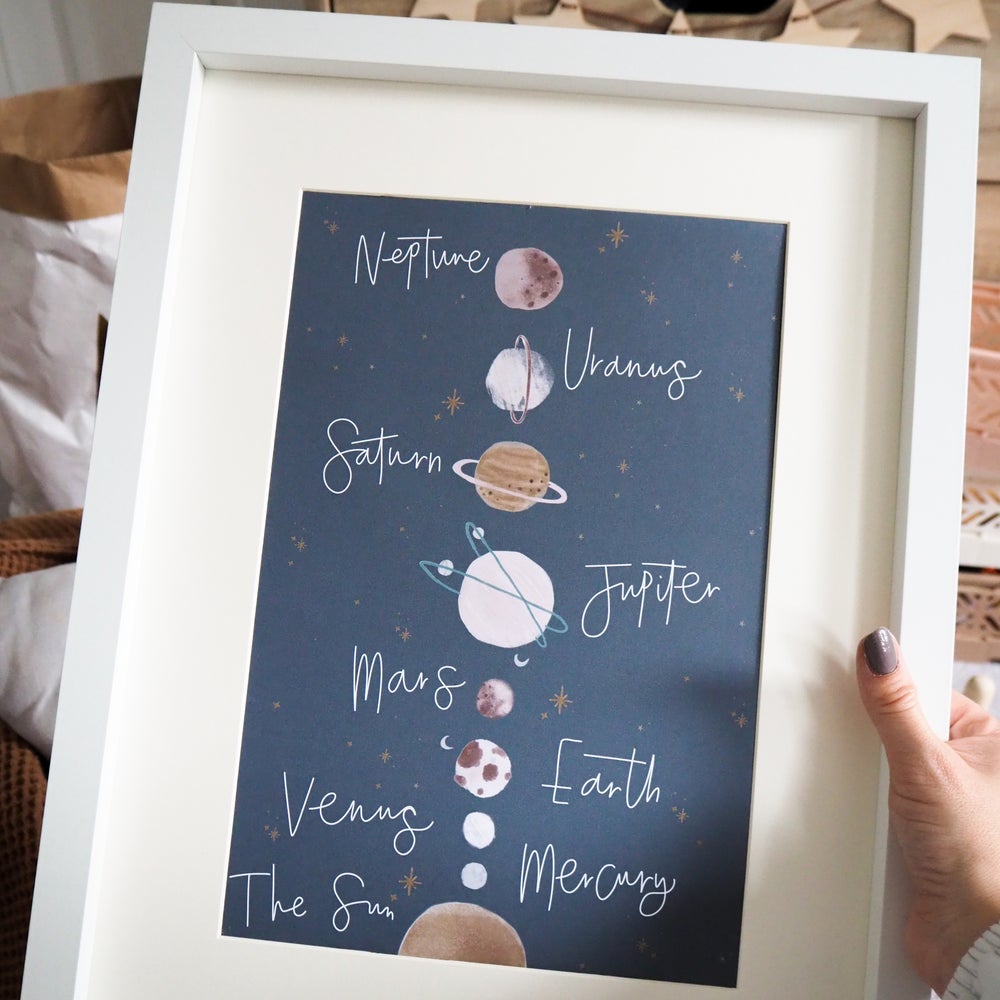 Neptune
Uranus
Saturn
Jupiter
Mars
Earth
Venus
Mercury
The Sun